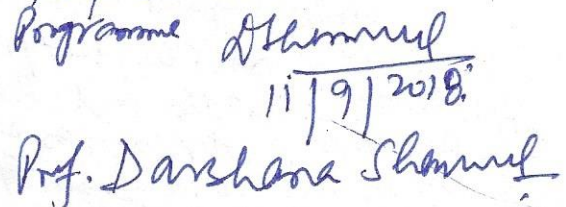 Programme DSharma
11/9/2018.
Prof. Darshana Sharma